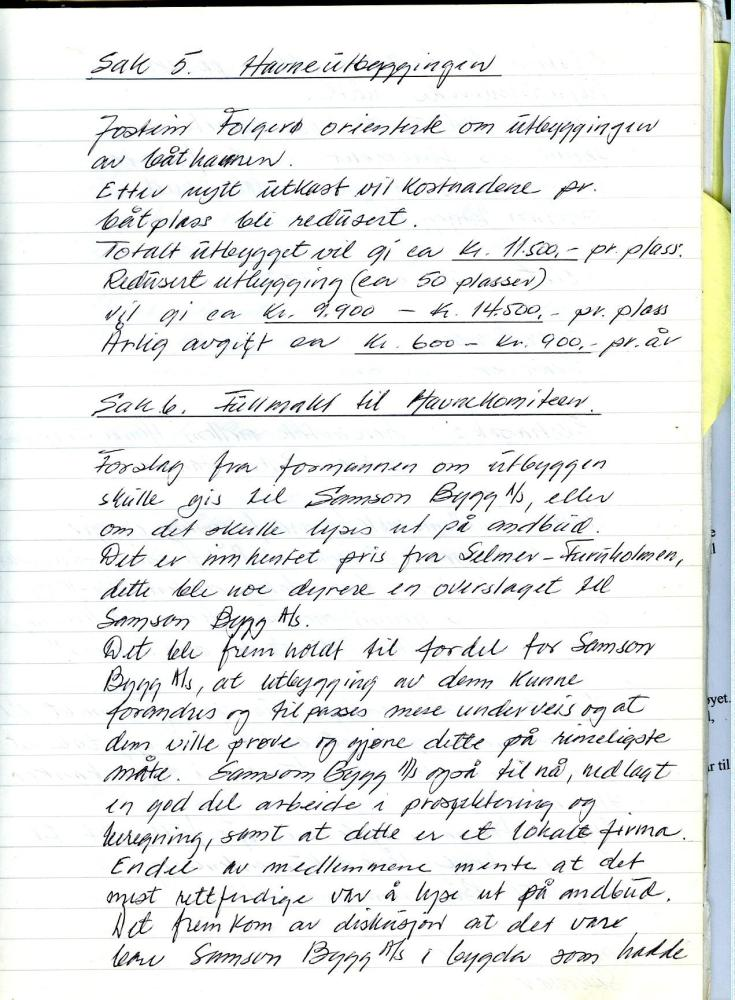 Sak 5. Havneutbyggingen
Jostein Folgerø orienterte om utbyggingen
av båthavnen.
Etter nytt utkast vil kostnadene pr.
båtplass bli redusert.
Totalt utbygget vil gi ca kr. 11.500,- pr. plass.
Redusert utbygging (ca 50 plasser)
vil gi ca kr. 9.900 - kr. 14.500,- pr. plass
Årlig avgift ca kr. 600 - kr. 900,- pr. år
Sak 6. Fullmakt til Havnekomiteen.
Forslag fra formannen om utbyggen
skulle gis til Samson Bygg A/s, eller
om det skulle lyses ut på andbud.
Det er innhentet pris fra Selmer - Furuholmen,
dette ble noe dyrere en overslaget til
Samson Bygg A/s.
Det ble fremholdt til fordel for Samson
Bygg A/s, at utbygging av dem kunne
forandres og tilpasses mere underveis og at
dem ville prøve og gjøre dette på rimeligste
måte. Samsom Bygg A/s også til nå, nedlagt
en god del arbeide i prosjektering og
beregning, samt at dette er et lokalt firma.
Endel av medlemmene mente at det
mest rettferdige var å lyse ut på andbud.
Det fremkom av diskusjon at det vare
bare Samson Bygg A/s i bygda som hadde
yet.
r til